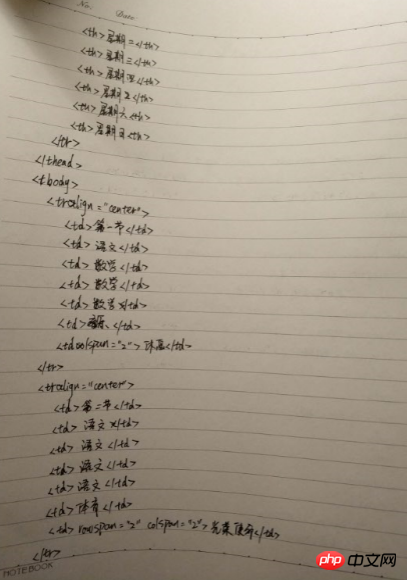 No.
Date
<th>星期二</th>
<th>星期三</th>
<th>星期四</th>
<th>星期五</th>
<th>星期六<th>
<th>星期日<th>
</tr>
</thead>
<tbody>
<tr align="center">
<td>第一节</td>
<td>语文</td>
<td>数学</td>
<td>数学</td>
<td>数学</td>
<td>音乐</td>
<td colspan="2">休息</td>
</tr>
<tr align="center">
<td>第二节</td>
<td>语文</td>
<td>语文</td>
<td>语文</td>
<td>语文</td>
<td>体育</td>
<td> rowspan="2" colspan="2"></td>
</tr>
NOTEBOOK
php 中文网